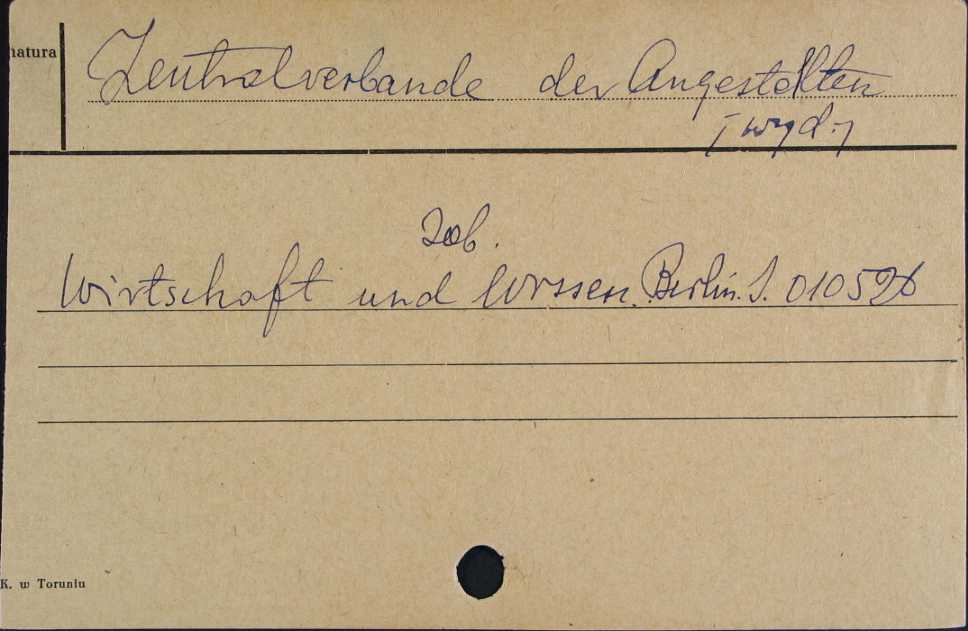 natura
Zentralverbande der Angestellten
[wyd.]
Zob.
Wirtschaft und Wissen. Berlin. S. 010526
K. w Toruniu